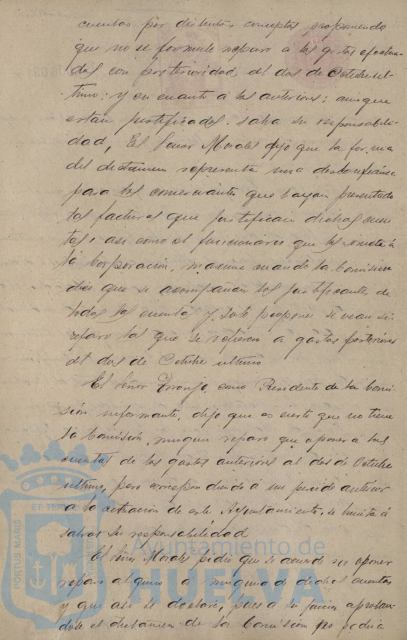 cuentas por distintos conceptos proponiendo
que no se formule reparo a los gastos efectua-
dos con posterioridad, al dos de Octubre úl-
timo: y en cuanto a los anteriores; aunque
estan justificados, salva su responsabili-
dad, El Señor Morales dijo que la forma
del dictamen representa una desconfianza
para los comerciantes que hayan presentado
las facturas que justifican dichas cuen-
tas, asi como al funcionario que las remite a
la Corporación, maxime cuando la Comision
dice que se acompañan los justificantes de
todas las cuentas y solo propone se vean sin
reparo las que se refieren a gastos posteriores
al dos de Octubre ultimo
El Señor Granjo, como Presidente de la Comi-
sión informante, dijo que es cierto que no tiene
la Comisión, ningun reparo que oponer a las
cuentas de los gastos anteriores al dos de Octubre
ultimo, pero correspondiendo a un periodo anterior
a la actuacion de este Ayuntamiento, se limita á
salvar su responsabilidad
El Señor Morales pidio que se acuerde no oponer
reparo alguno a ninguna de dichas cuentas
y que asi se declare, pues a su juicio aproban-
dose el dictamen de la Comisión
Ayuntamiento de
HUELVA
PORTUS MARIS